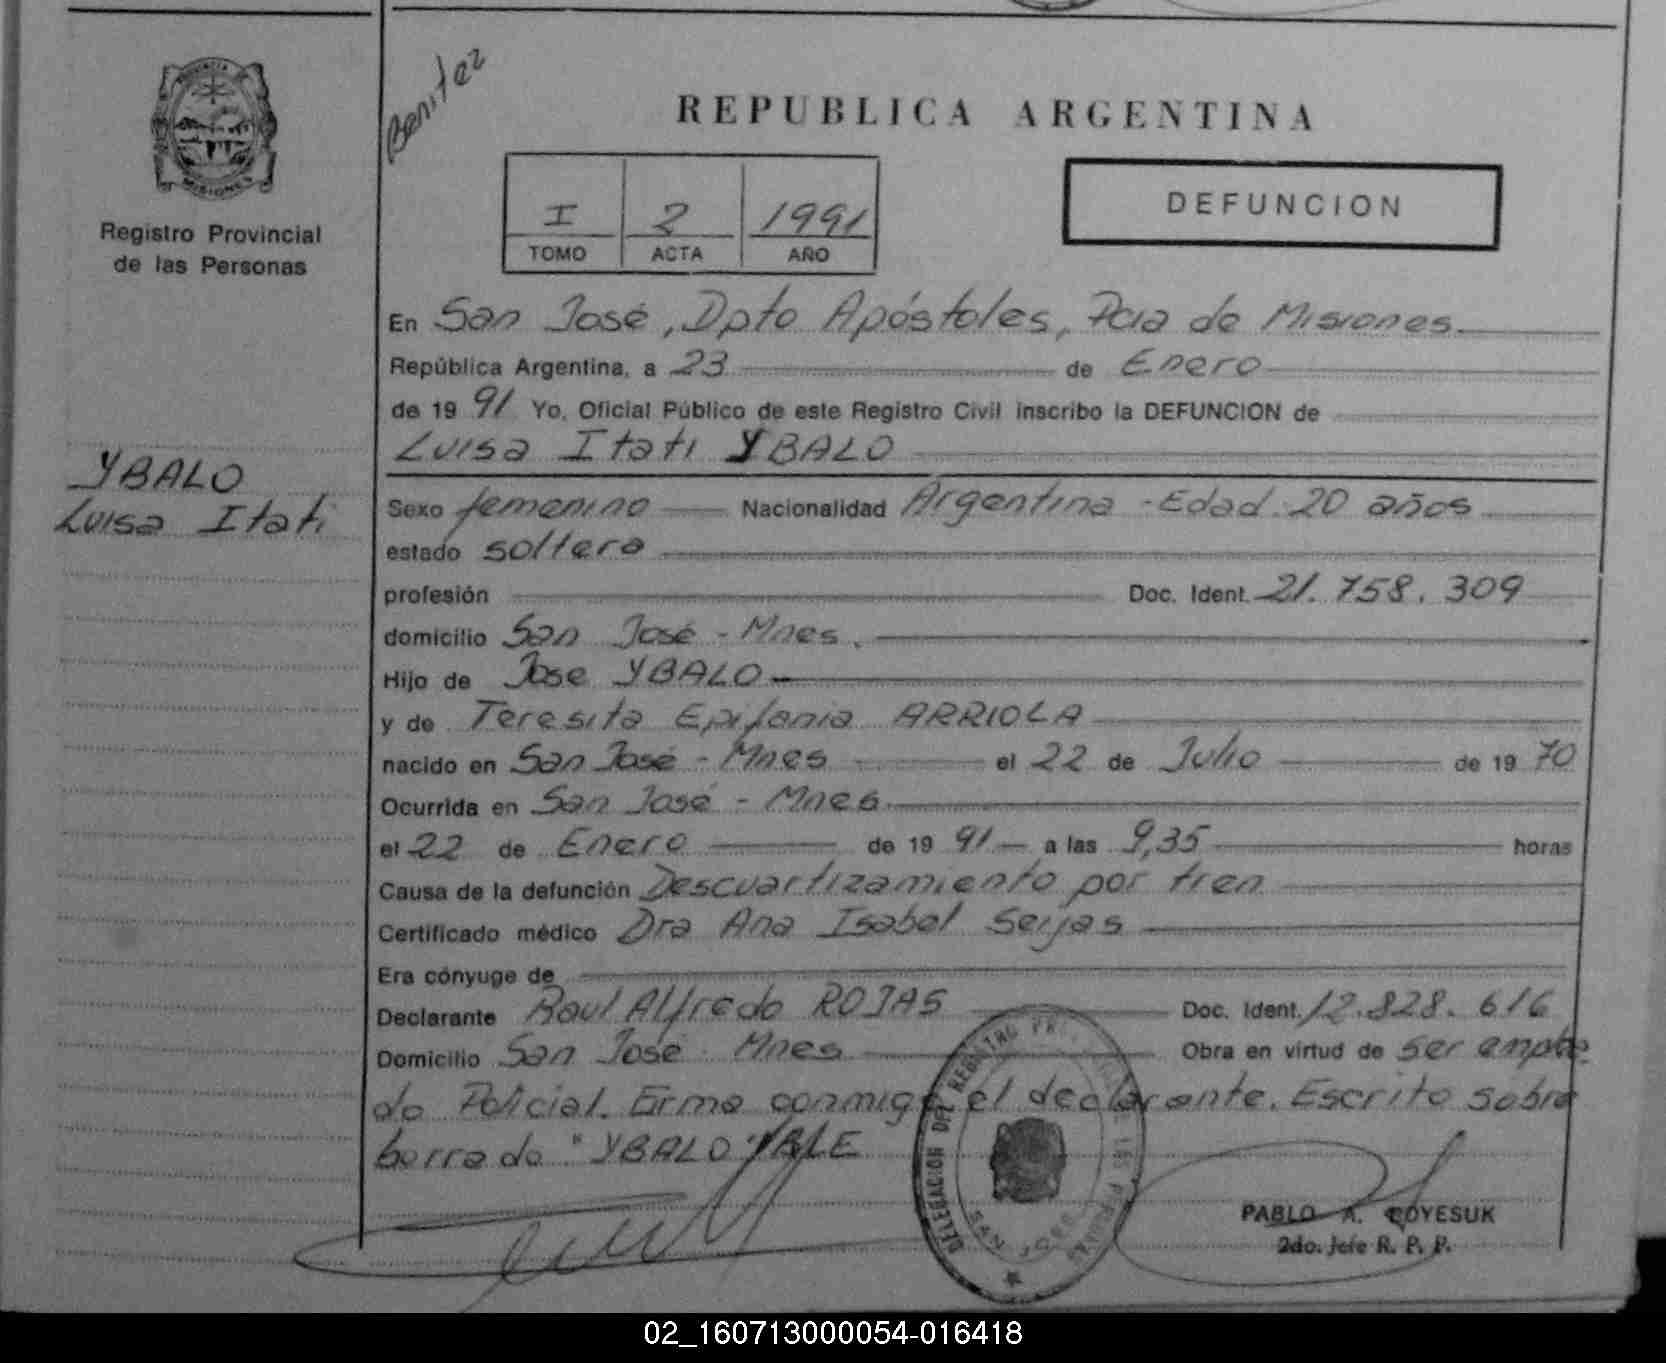 Benitez
PROVINCIA DE
MISIONES
Registro Provincial
de las Personas
YBALO
Luisa Itati
REPUBLICA ARGENTINA
I 2 1991
TOMO ACTA AÑO
DEFUNCION
En San José, Dpto Apóstoles, Pcia de Misiones
República Argentina, a 23 de Enero
de 1991 Yo, Oficial Público de este Registro Civil inscribo la DEFUNCION de
Luisa Itati YBALO
Sexo femenino Nacionalidad Argentina - Edad. 20 años
estado soltera
profesión Doc. Ident. 21.758.309
domicilio San José - Mnes.
Hijo de Jose YBALO
y de Teresita Epifania ARRIOLA
nacido en San José - Mnes el 22 de Julio de 1970
Ocurrida en San José - Mnes
el 22 de Enero de 1991 a las 9,35 horas
Causa de la defunción Descuartizamiento por tren
Certificado médico Dra Ana Isabel Seijas
Era cónyuge de
Declarante Raul Alfredo ROJAS Doc. Ident. 12.828.616
Domicilio San José - Mnes Obra en virtud de ser emplea
do Policial. Firma conmigo el declarante. Escrito sobre
borrado "YBALO" VALE
DELEGACION DEL REGISTRO PROVINCIAL DE LAS PERSONAS
SAN JOSE
PABLO A. COYESUK
2do. Jefe R. P. P.
02_160713000054-016418